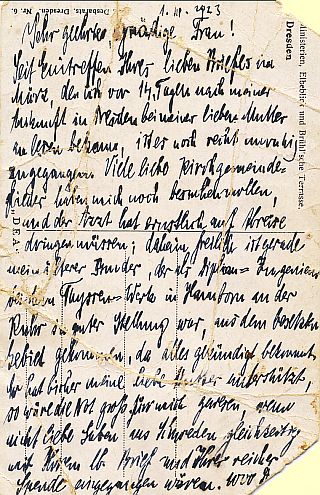 1. IV. 1923
Desbarats, Dresden. Nr. 6.
Ministerien, Elbeblick und Brühl'sche Terrasse,
Dresden
"DEA"
Sehr geehrte, gnädige Frau!
Seit Eintreffen Ihres lieben Briefes im
März, den ich vor 14 Tagen nach meiner
Ankunft in Dresden bei meiner lieben Mutter
zu lesen bekam, ist es noch recht unruhig
zugegangen. Viele liebe Kirchgemeinde-
glieder haben mich noch besuchen wollen,
und der Arzt hat ernstlich auf Abreise
dringen müssen; daheim freilich ist gerade
mein älterer Bruder, der als Diplom-Ingenieur
bei den Thyssen-Werke in Hamborn an der
Ruhr in guter Stellung war, aus dem besetzten
Gebiet gekommen, da alles gekündigt bekommt.
Er hat bisher meine liebe Mutter unterstützt,
so wäre die Not groß für mich gewesen, wenn
nicht liebe Gaben aus Schweden gleichzeitig
mit Ihrem lb. Brief und Ihrer reichen
Spende eingegangen wären.